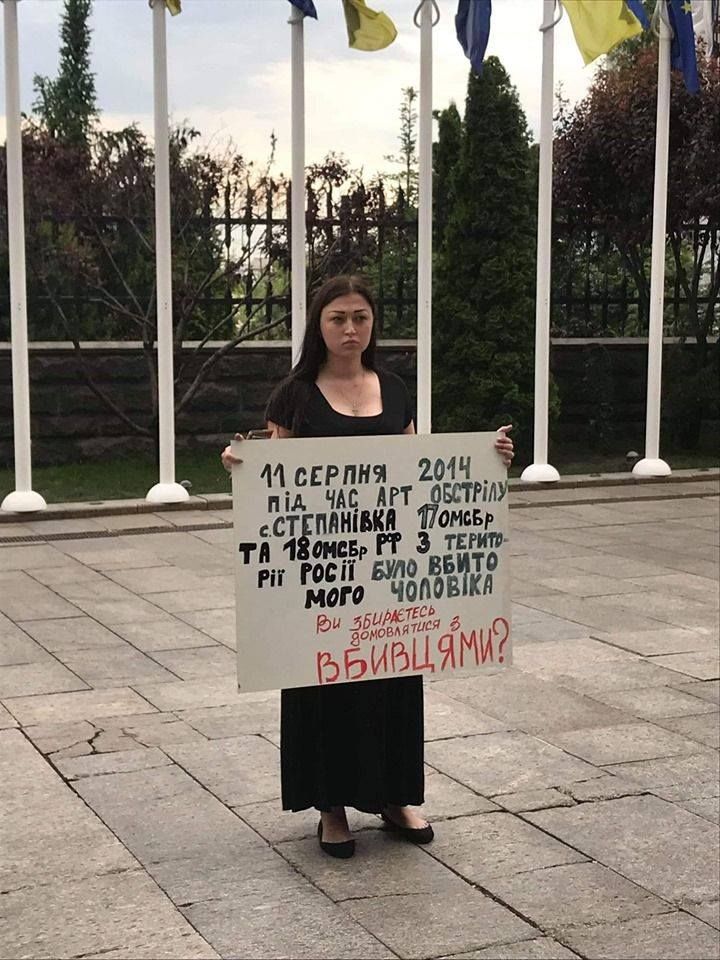 11 СЕРПНЯ 2014
ПІД ЧАС АРТ ОБСТРІЛУ
с.СТЕПАНІВКА 17ОМСБР
ТА 18ОМСБР РФ З ТЕРИТО-
РІЇ РОСІЇ БУЛО ВБИТО
МОГО ЧОЛОВІКА
Ви ЗБИРАЄТЕСЬ
ДОМОВЛЯТИСЯ З
ВБИВЦЯМИ?